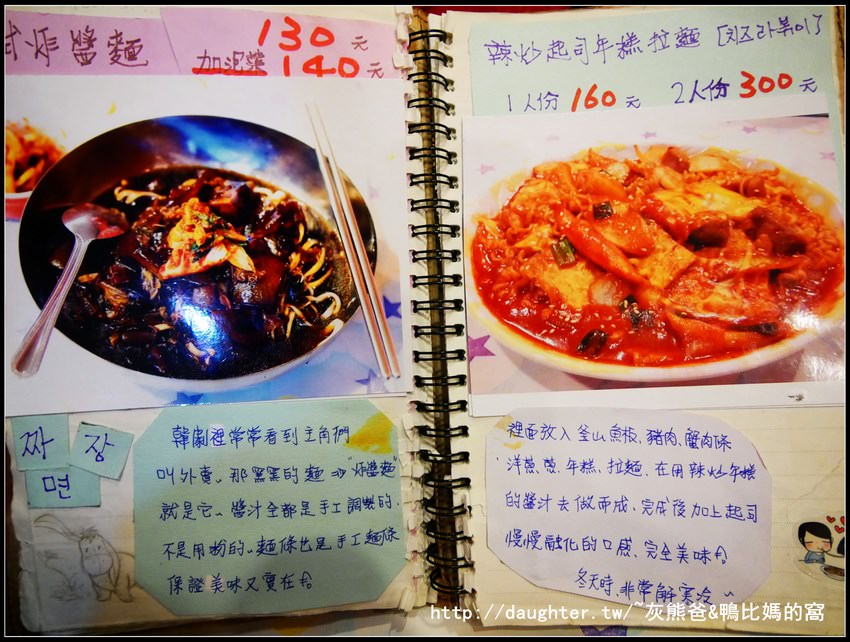 式炸醬麵
130元
加泡菜 140元
짜장면
韓劇裡常常看到主角們
叫外賣、那黑黑的麵 "炸醬麵"
就是它、醬汁全部是手工調製的、
不是用粉的、麵條也是手工麵條
保證美味又實在
辣炒起司年糕拉麵 [치즈라볶이]
1人份 160元 2人份 300元
裡面放入釜山魚板、豬肉、蟹肉條
洋蔥、蔥、年糕、拉麵、在用辣炒年糕
的醬汁去做而成、完成後加上起司
慢慢融化的口感、完全美味
冬天時、非常解寒冷~
http://daughter.tw/~灰熊爸&鴨比媽的窩